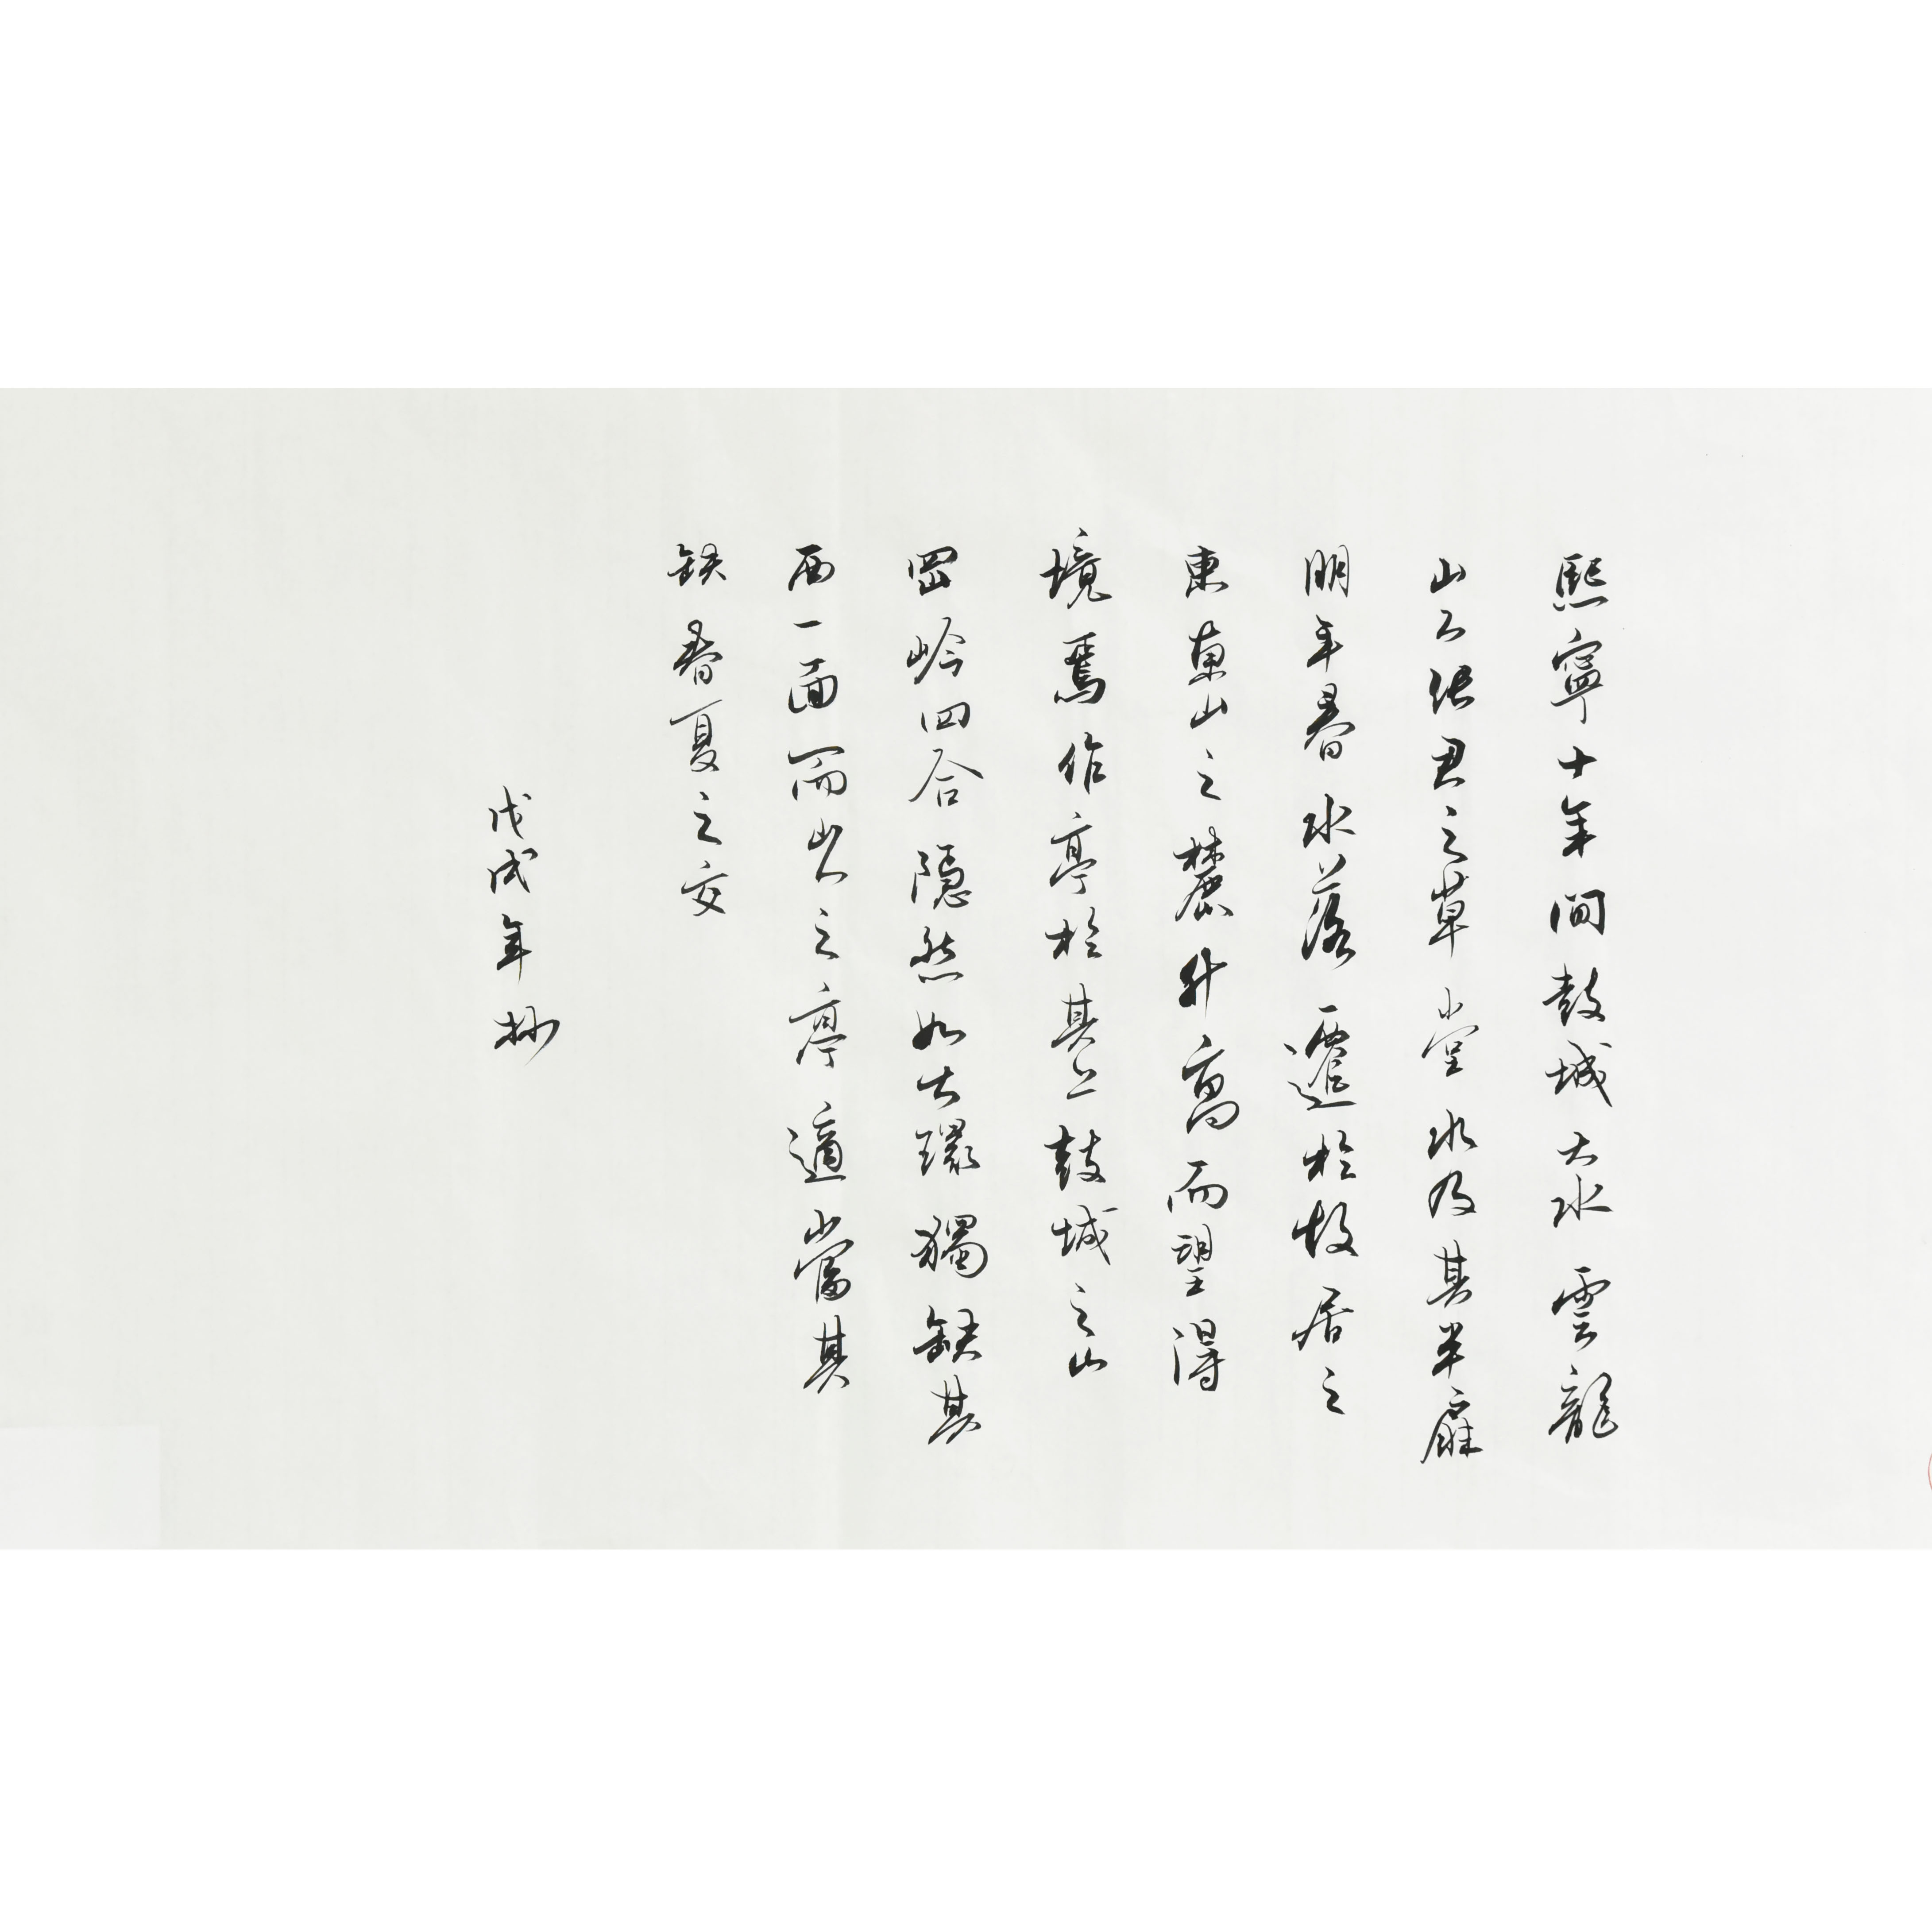 熙寧十年間鼓城大水雲龍
山人張君之草堂水及其半雇
明年春水落遷於故居之
東東山之麓升高而望得
境焉作亭於其上鼓城之山
岡岭四合隐然如大環獨缺其
西一面而山人之亭適當其
缺春夏之交
戊戌年抄